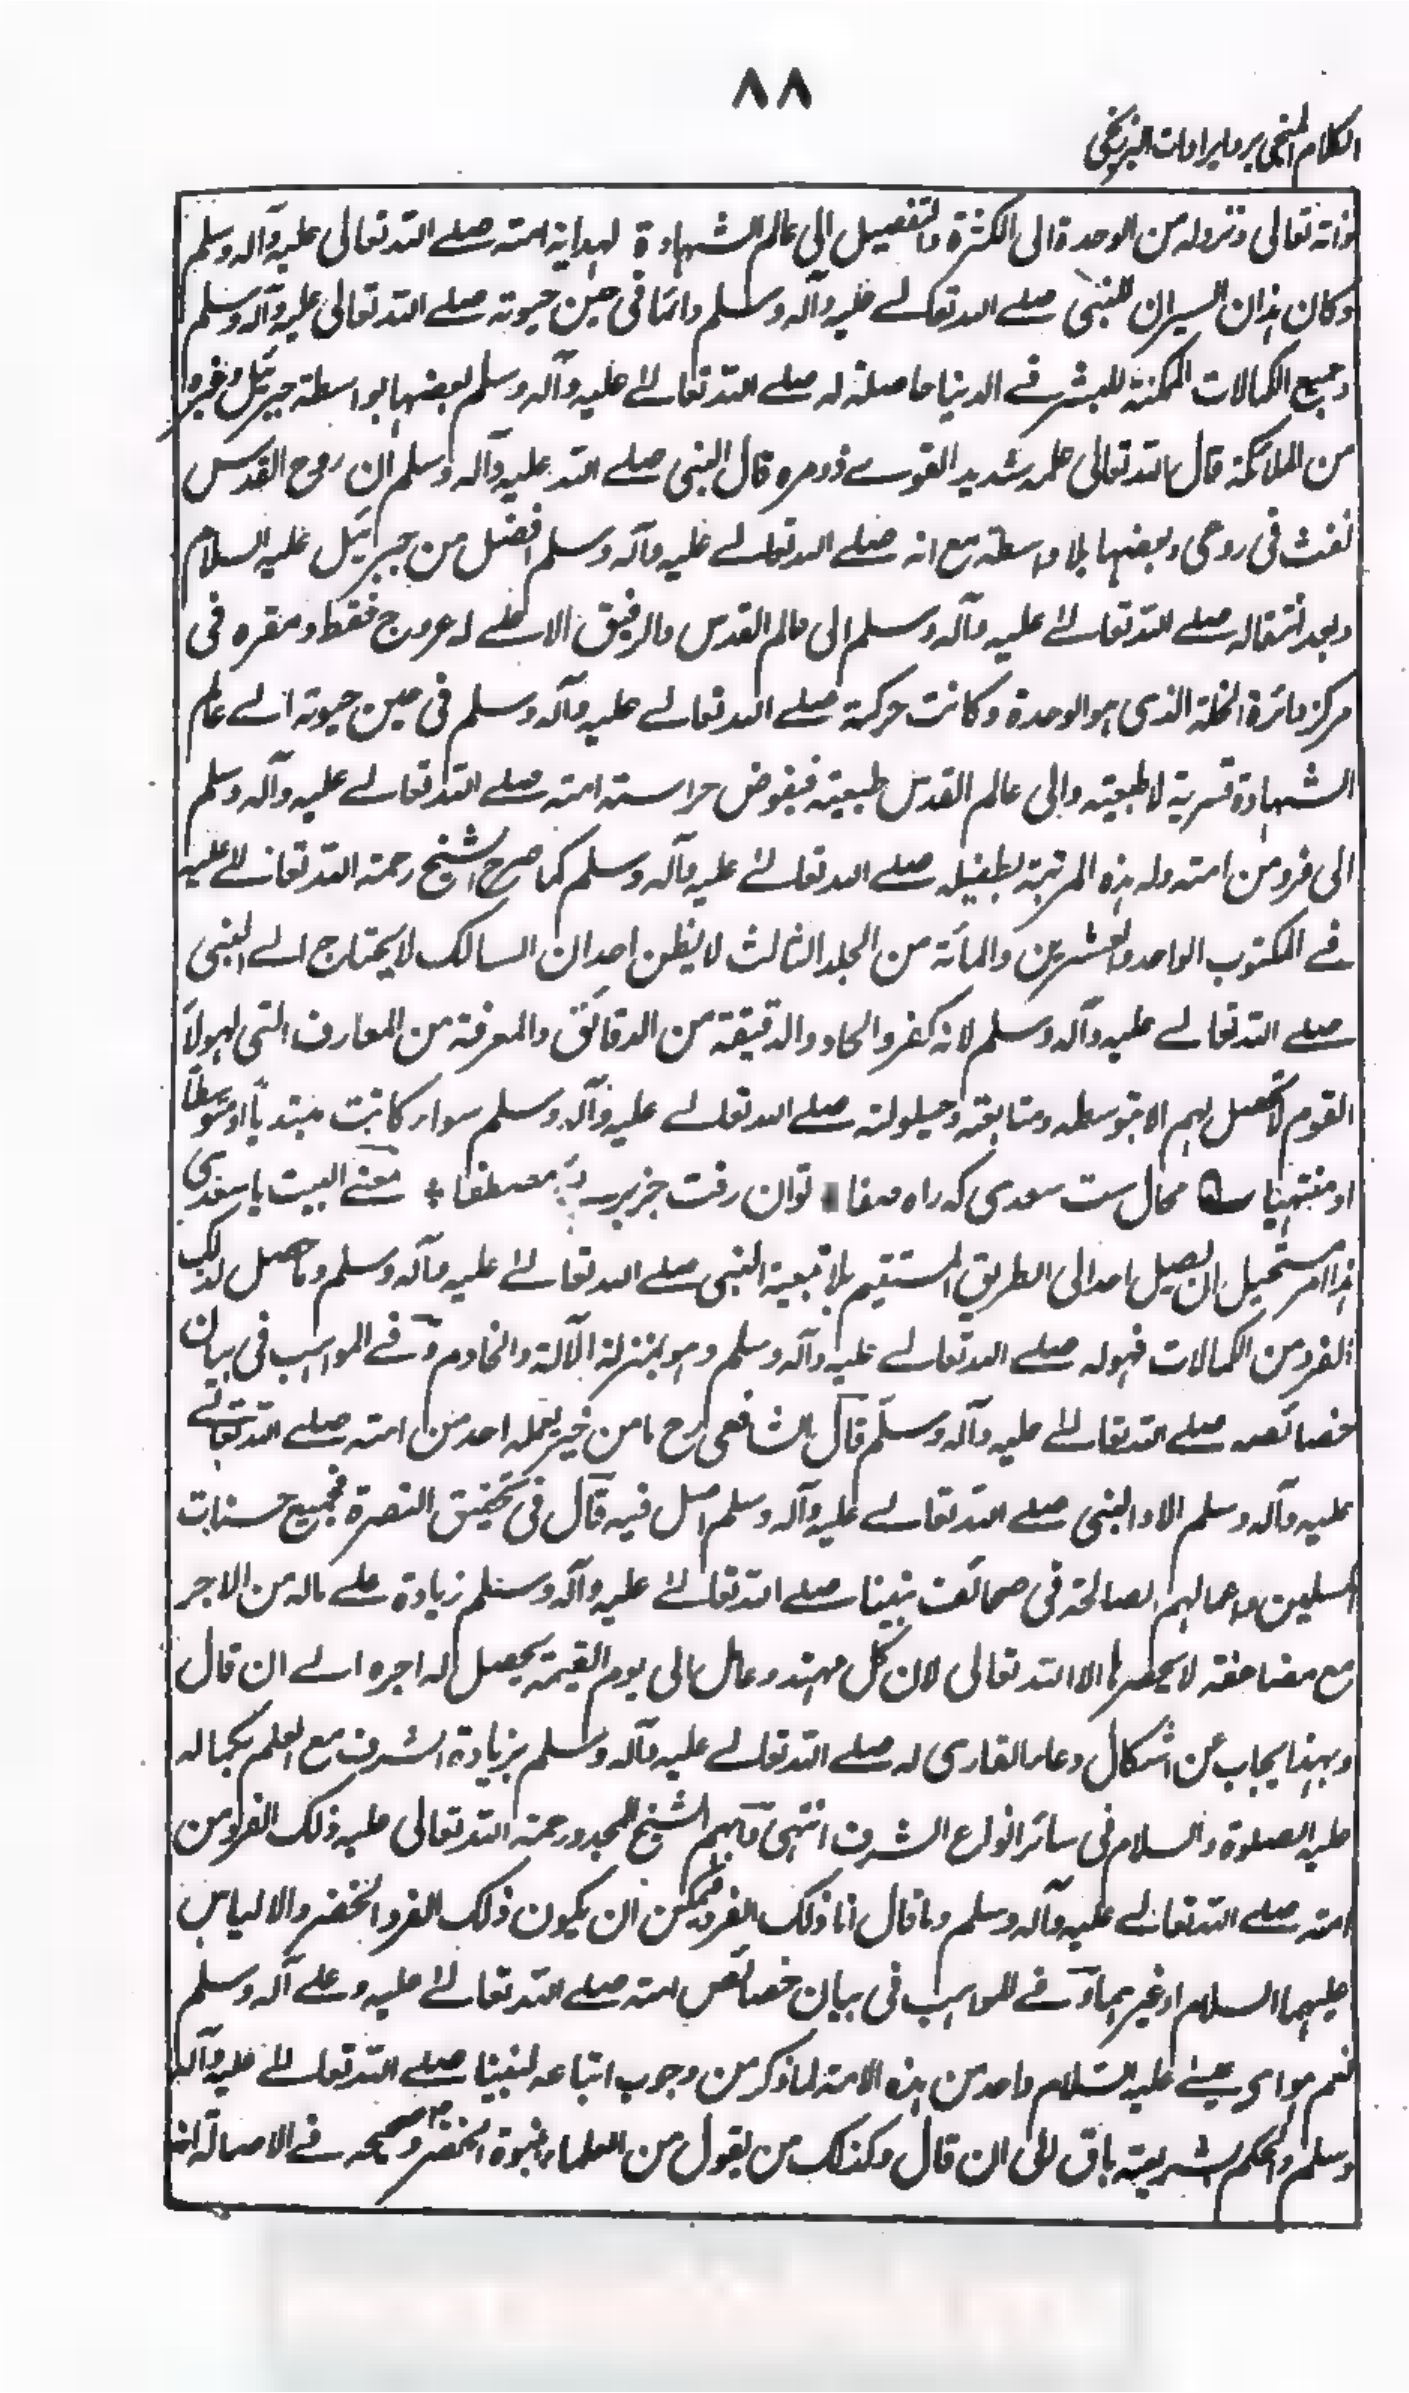 ٨٨
الكلام المنجى برد ايرادات البرزنجى
ذاته تعالى ونزوله من الوحدة الى الكثرة والتفصيل الى عالم الشهادة لهداية امته صلے اللہ تعالى عليه وآله وسلم
وكان هذان السيران للنبى صلے اللہ تعالے عليه وآله وسلم دائما فى حين حيوته صلے اللہ تعالى عليه وآله وسلم
وجميع الكمالات الممكنة للبشر فے الدنيا حاصلة له صلے اللہ تعالےٰ عليه وآله وسلم بعضها بواسطة جبرئيل وغيره
من الملائكة قال اللہ تعالى علمه شديد القوے ذو مره قال النبى صلے اللہ عليه وآله وسلم ان روح القدس
نفث فى روعى وبعضها بلا واسطة مع انه صلے اللہ تعالے عليه وآله وسلم افضل من جبرئيل عليه السلام
وبعد انتقاله صلے اللہ تعالےٰ عليه وآله وسلم الى عالم القدس والرفيق الاعلے له عروج فقط ومقره فى
مركز دائرة الخلة الذى هو الوحدة وكانت حركة صلے اللہ تعالے عليه وآله وسلم فى حين حيوته الے عالم
الشهادة قسرية لا طبعية والى عالم القدس طبعية فيفوض حراسته امته صلے اللہ تعالے عليه وآله وسلم
الى فرد من امته وله هذه المرتبة بطفيله صلے اللہ تعالےٰ عليه وآله وسلم كما صرح الشيخ رحمة اللہ تعالےٰ عليه
فے المكتوب الواحد والعشرين والمائة من الجلد الثالث لا يظن احد ان السالك لا يحتاج الے النبى
صلے اللہ تعالے عليه وآله وسلم لانه كفر والحاد والدقيقة من الدقائق والمعرفة من المعارف التى لهولاء
القوم لا تحصل لهم الا بتوسطه ومتابعته وحيلولته صلے اللہ تعالے عليه وآله وسلم سواء كانت مبتدياً او متوسطاً
او منتهيا ؎ محال ست سعدى كه راه صفا توان رفت جز برپے مصطفا * معنے البيت يا سعدى
هذا امر مستحيل ان يصيل احد الى الطريق المستقيم بلا تبعية النبى صلے اللہ تعالےٰ عليه وآله وسلم وما حصل لذلك
الفرد من الكمالات فهو له صلے اللہ تعالے عليه وآله وسلم وهو بمنزلة الآلة والخادم و فے المواهب فى بيان
خصائصه صلے اللہ تعالےٰ عليه وآله وسلم قال الشافعى رح ما من خير يعمله احد من امته صلے اللہ تعالے
عليه وآله وسلم الا والنبى صلے اللہ تعالے عليه وآله وسلم اصل فيه قال فى تحقيق النصرة فجميع حسنات
المسلمين واعمالهم الصالحة فى صحائف نبينا صلے اللہ تعالےٰ عليه وآله وسلم زيادة علے ماله من الاجر
مع مضاعفة لا يحصرها الا اللہ تعالى لان كل مهتد وعامل الى يوم القيمة يحصل له اجره الے ان قال
وبهذا يجاب عن اشكال دعاء القارى له صلے اللہ تعالے عليه وآله وسلم بزيادة الشرف مع العلم بكماله
عليه الصلوة والسلام فى سائر انواع الشرف انتهى وابهم الشيخ المجدد رحمة اللہ تعالى عليه ذلك الفرد من
امته صلے اللہ تعالے عليه وآله وسلم وما قال انا ذلك الفرد فيمكن ان يكون ذلك الفرد الخضر والالياس
عليهما السلام او غيرهما و فے المواهب فى بيان خصائص امته صلے اللہ تعالےٰ عليه وعلے آله وسلم
نعم هو اى عيسے عليه السلام واحد من هذه الامة لما ذكر من وجوب اتباعه لنبينا صلے اللہ تعالےٰ عليه وآله
وسلم والحكم بشريعته باق الى ان قال وكذلك من يقول من العلماء بنبوة الخضر وصححه فے الاصالة انه